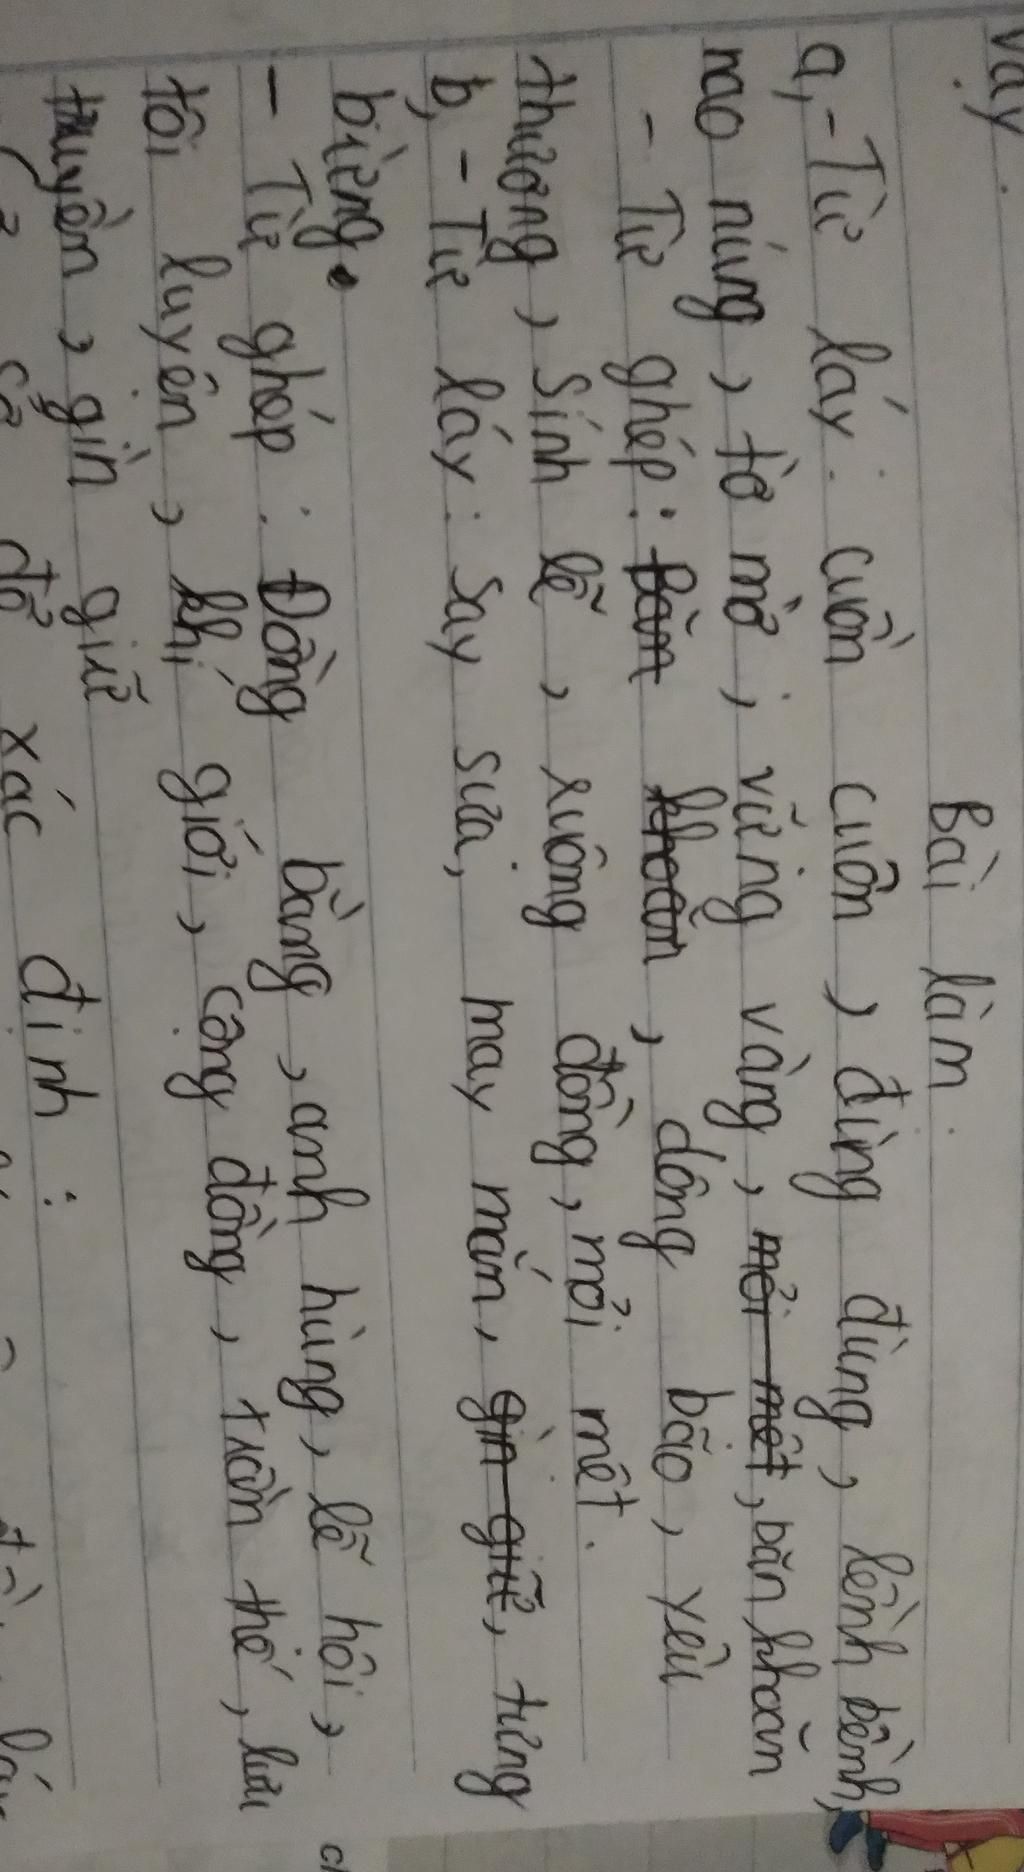 vậy.
Bài làm.
a, - Từ láy: cuồn cuộn, đùng đùng, lềnh bềnh,
nao núng, tờ mờ, vững vàng, mỏi mệt, băn khoăn
- Từ ghép: băn khoăn, dông bão, yêu
thương, sính lễ, xuống đồng, mỏi mệt.
b, - Từ láy: Say sưa, may mắn, gìn giữ, tưng
bừng.
- Từ ghép: Đồng bằng, anh hùng, lễ hội,
tôi luyện, khí giới, cộng đồng, trần thế, lưu
truyền, gìn giữ
xác định: